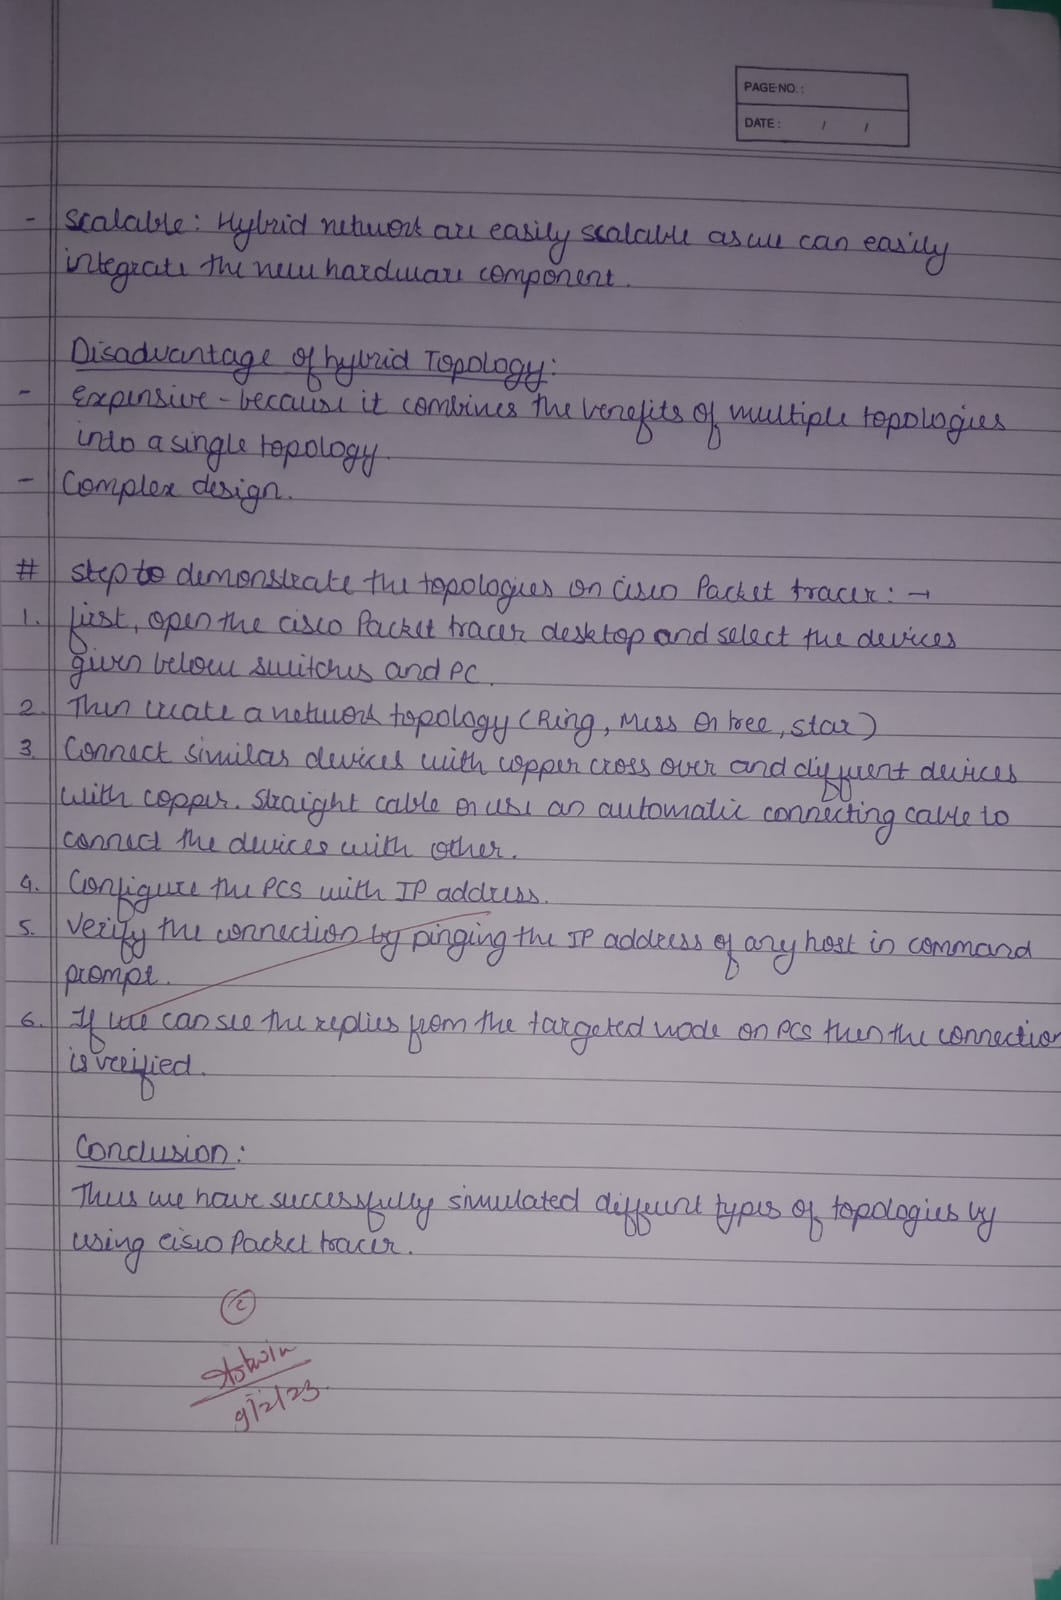 PAGE NO. :
DATE : / /
- Scalable : Hybrid network are easily scalable as we can easily
integrate the new hardware component.
Disadvantage of hybrid Topology :
- Expensive - because it combines the benefits of multiple topologies
into a single topology.
- Complex design.
# step to demonstrate the topologies on cisco Packet tracer : →
1. first, open the cisco Packet tracer desktop and select the devices
given below switches and PC.
2. Then create a network topology (Ring, Mess or tree, star)
3. Connect similar devices with copper cross over and different devices
with copper. Straight cable or use an automatic connecting cable to
connect the devices with other.
4. Configure the PCS with IP address.
5. Verify the connection by pinging the IP address of any host in command
prompt.
6. If we can see the replies from the targeted node on PCS then the connection
is verified.
Conclusion :
Thus we have successfully simulated different types of topologies by
using cisco Packet tracer.
2
9/2/23